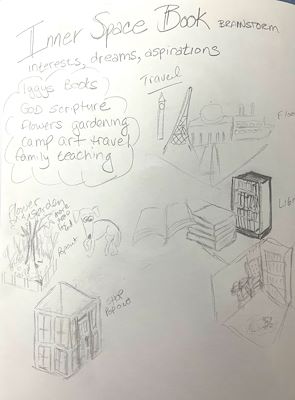 Inner Space Book BRAINSTORM
interests, dreams, aspirations
Iggys Books
God scripture
flowers gardening
camp art travel
family teaching
Travel
Flower
Garden
Popout
Shop
Popout